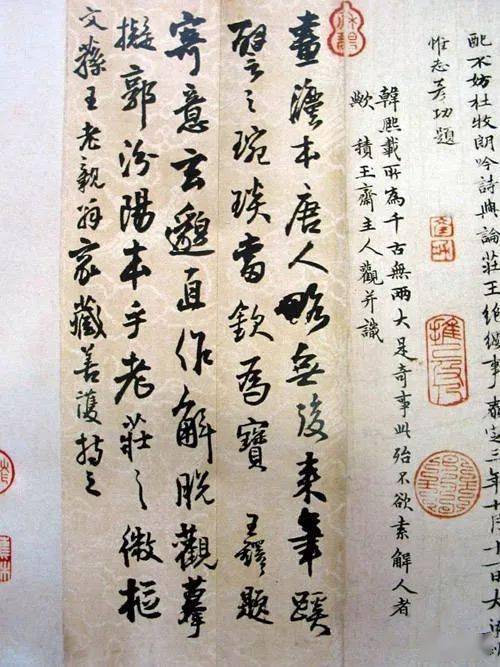 配不妨杜牧朗吟詩與論莊王絕纓事泰定三年十月十一日大
惟志彥功題
韓熙載所為千古無兩大是奇事此殆不欲素解人者
歟 積玉齋主人觀并識
畫灋本唐人略無後來筆蹊
譬之琬琰當欽為寶 王鐸題
寄意玄邈直作解脫觀摹
擬郭汾陽本乎老莊之微樞
文蓀王老親翁家藏善護持之